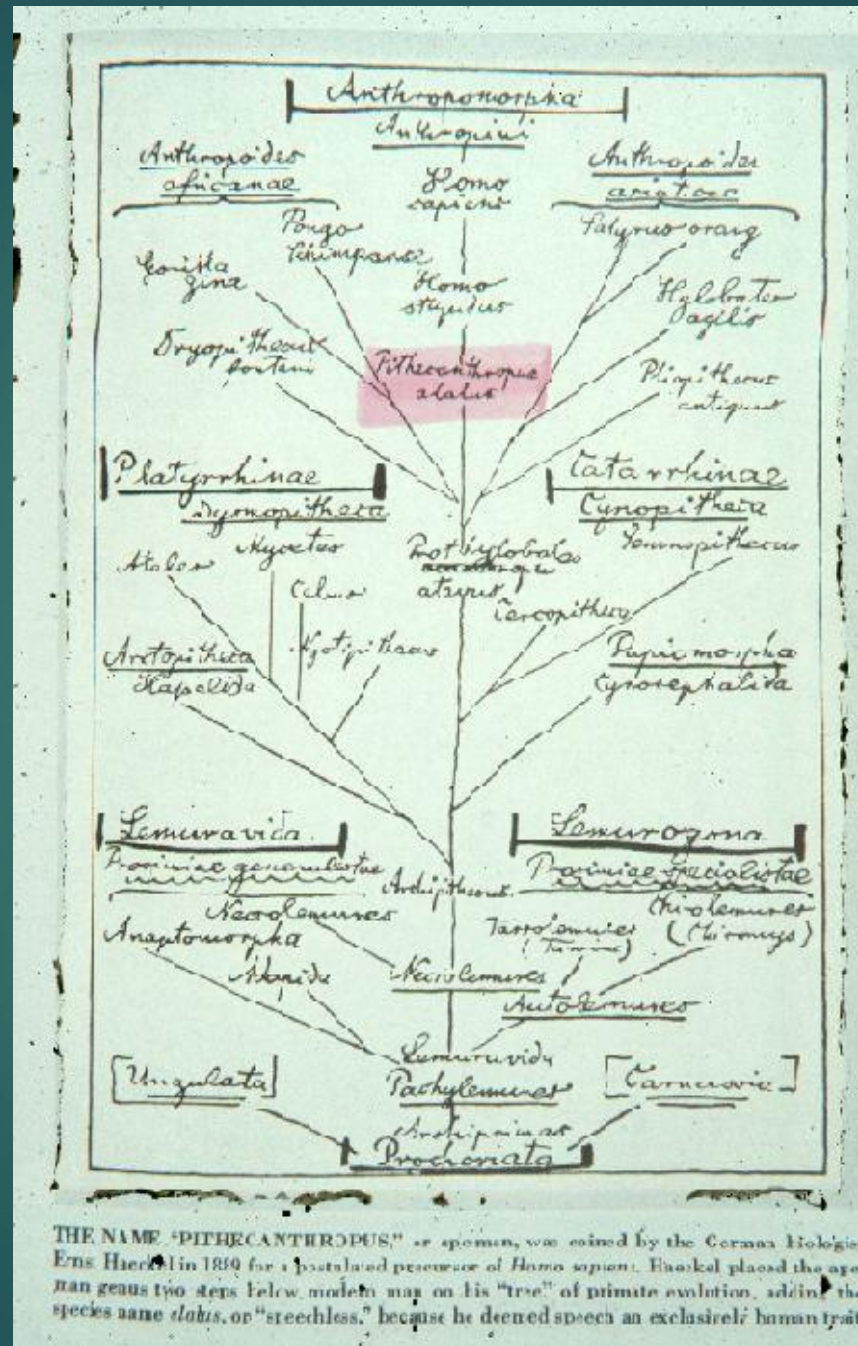 Anthropomorpha
Anthropini
Anthropoides
africanae
Homo
sapiens
Anthropoides
Pongo
Satyrus orang
Gorilla
gina
Homo
stupidus
Hylobates
agilis
Pithecanthropus
alalus
Pliopithecus
antiquus
Platyrrhinae
Catarrhinae
Cynopitheca
Mycetes
Ateles
atavus
Cercopitheca
Arctopitheca
Hapalida
Papiomorpha
Cynocephalida
Lemuravida
Lemurogona
Prosimiae generalistae
Prosimiae specialistae
Archipithecus
Necrolemures
Chirolemures
(Chiromys)
Anaptomorpha
Adapida
Necrolemures
Autolemures
Lemuravida
Pachylemures
[Ungulata]
Archiprimas
Prochoriata
THE NAME "PITHECANTHROPUS," or apeman, was coined by the German biologis
Erns Haeckel in 18 for a postulated precursor of Homo sapiens. Haeckel placed the ape
man genus two steps below modern man on his "tree" of primate evolution, adding the
species name alalus, or "speechless," because he deemed speech an exclusively human trait